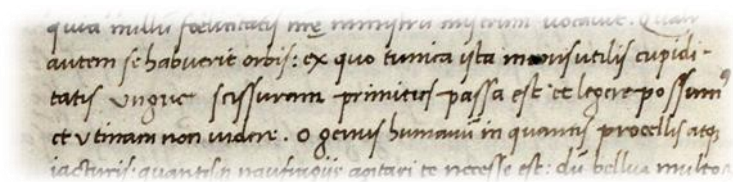 quia nulli foelicitatis me ministru miserum vocavit. Qualit
autem se habuerit orbis: ex quo tunica ista inconsutilis cupidi-
tatis ungue scissuram primitus passa est et legere possumꝰ
et utinam non videre. O genus humanū in quantis procellis atqꝫ
iacturis: quantisqꝫ naufragiis agitari te necesse est: dū bellua multoꝝ